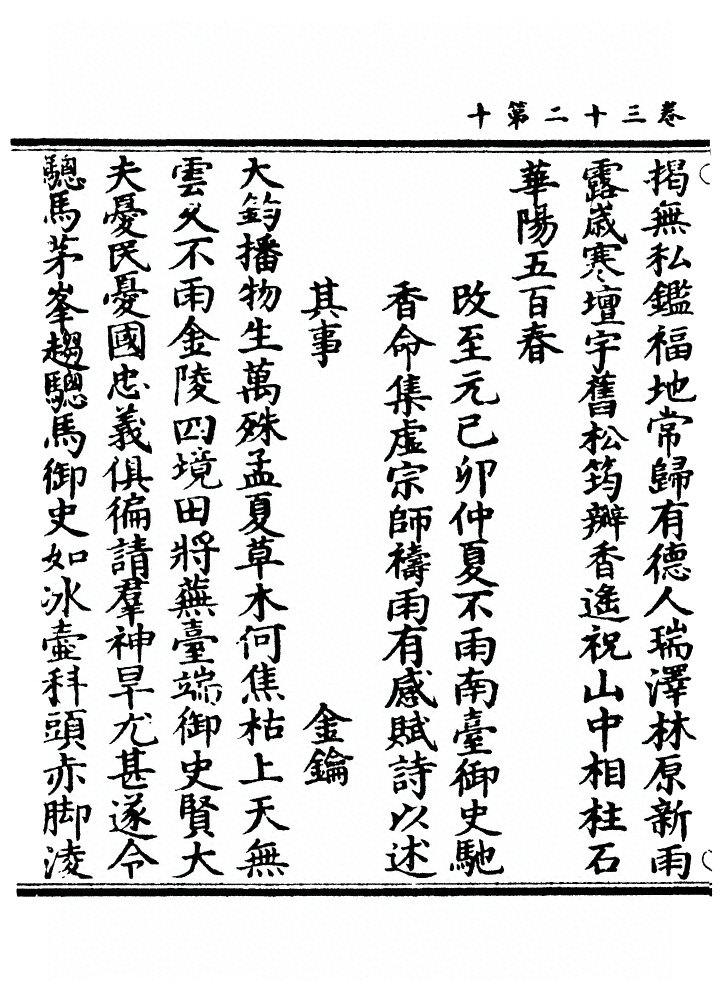 卷三十二第十
揭無私鑑福地常歸有德人瑞澤林原新雨
露歲寒壇宇舊松筠瓣香遙祝山中相柱石
華陽五百春
改至元己卯仲夏不雨南臺御史馳
香命集虛宗師禱雨有感賦詩以述
其事
金鑰
大鈞播物生萬殊孟夏草木何焦枯上天無
雲久不雨金陵四境田將蕪臺端御史賢大
夫憂民憂國忠義俱徧請羣神旱尤甚遂令
驄馬茅峯趨驄馬御史如冰壺科頭赤脚淩